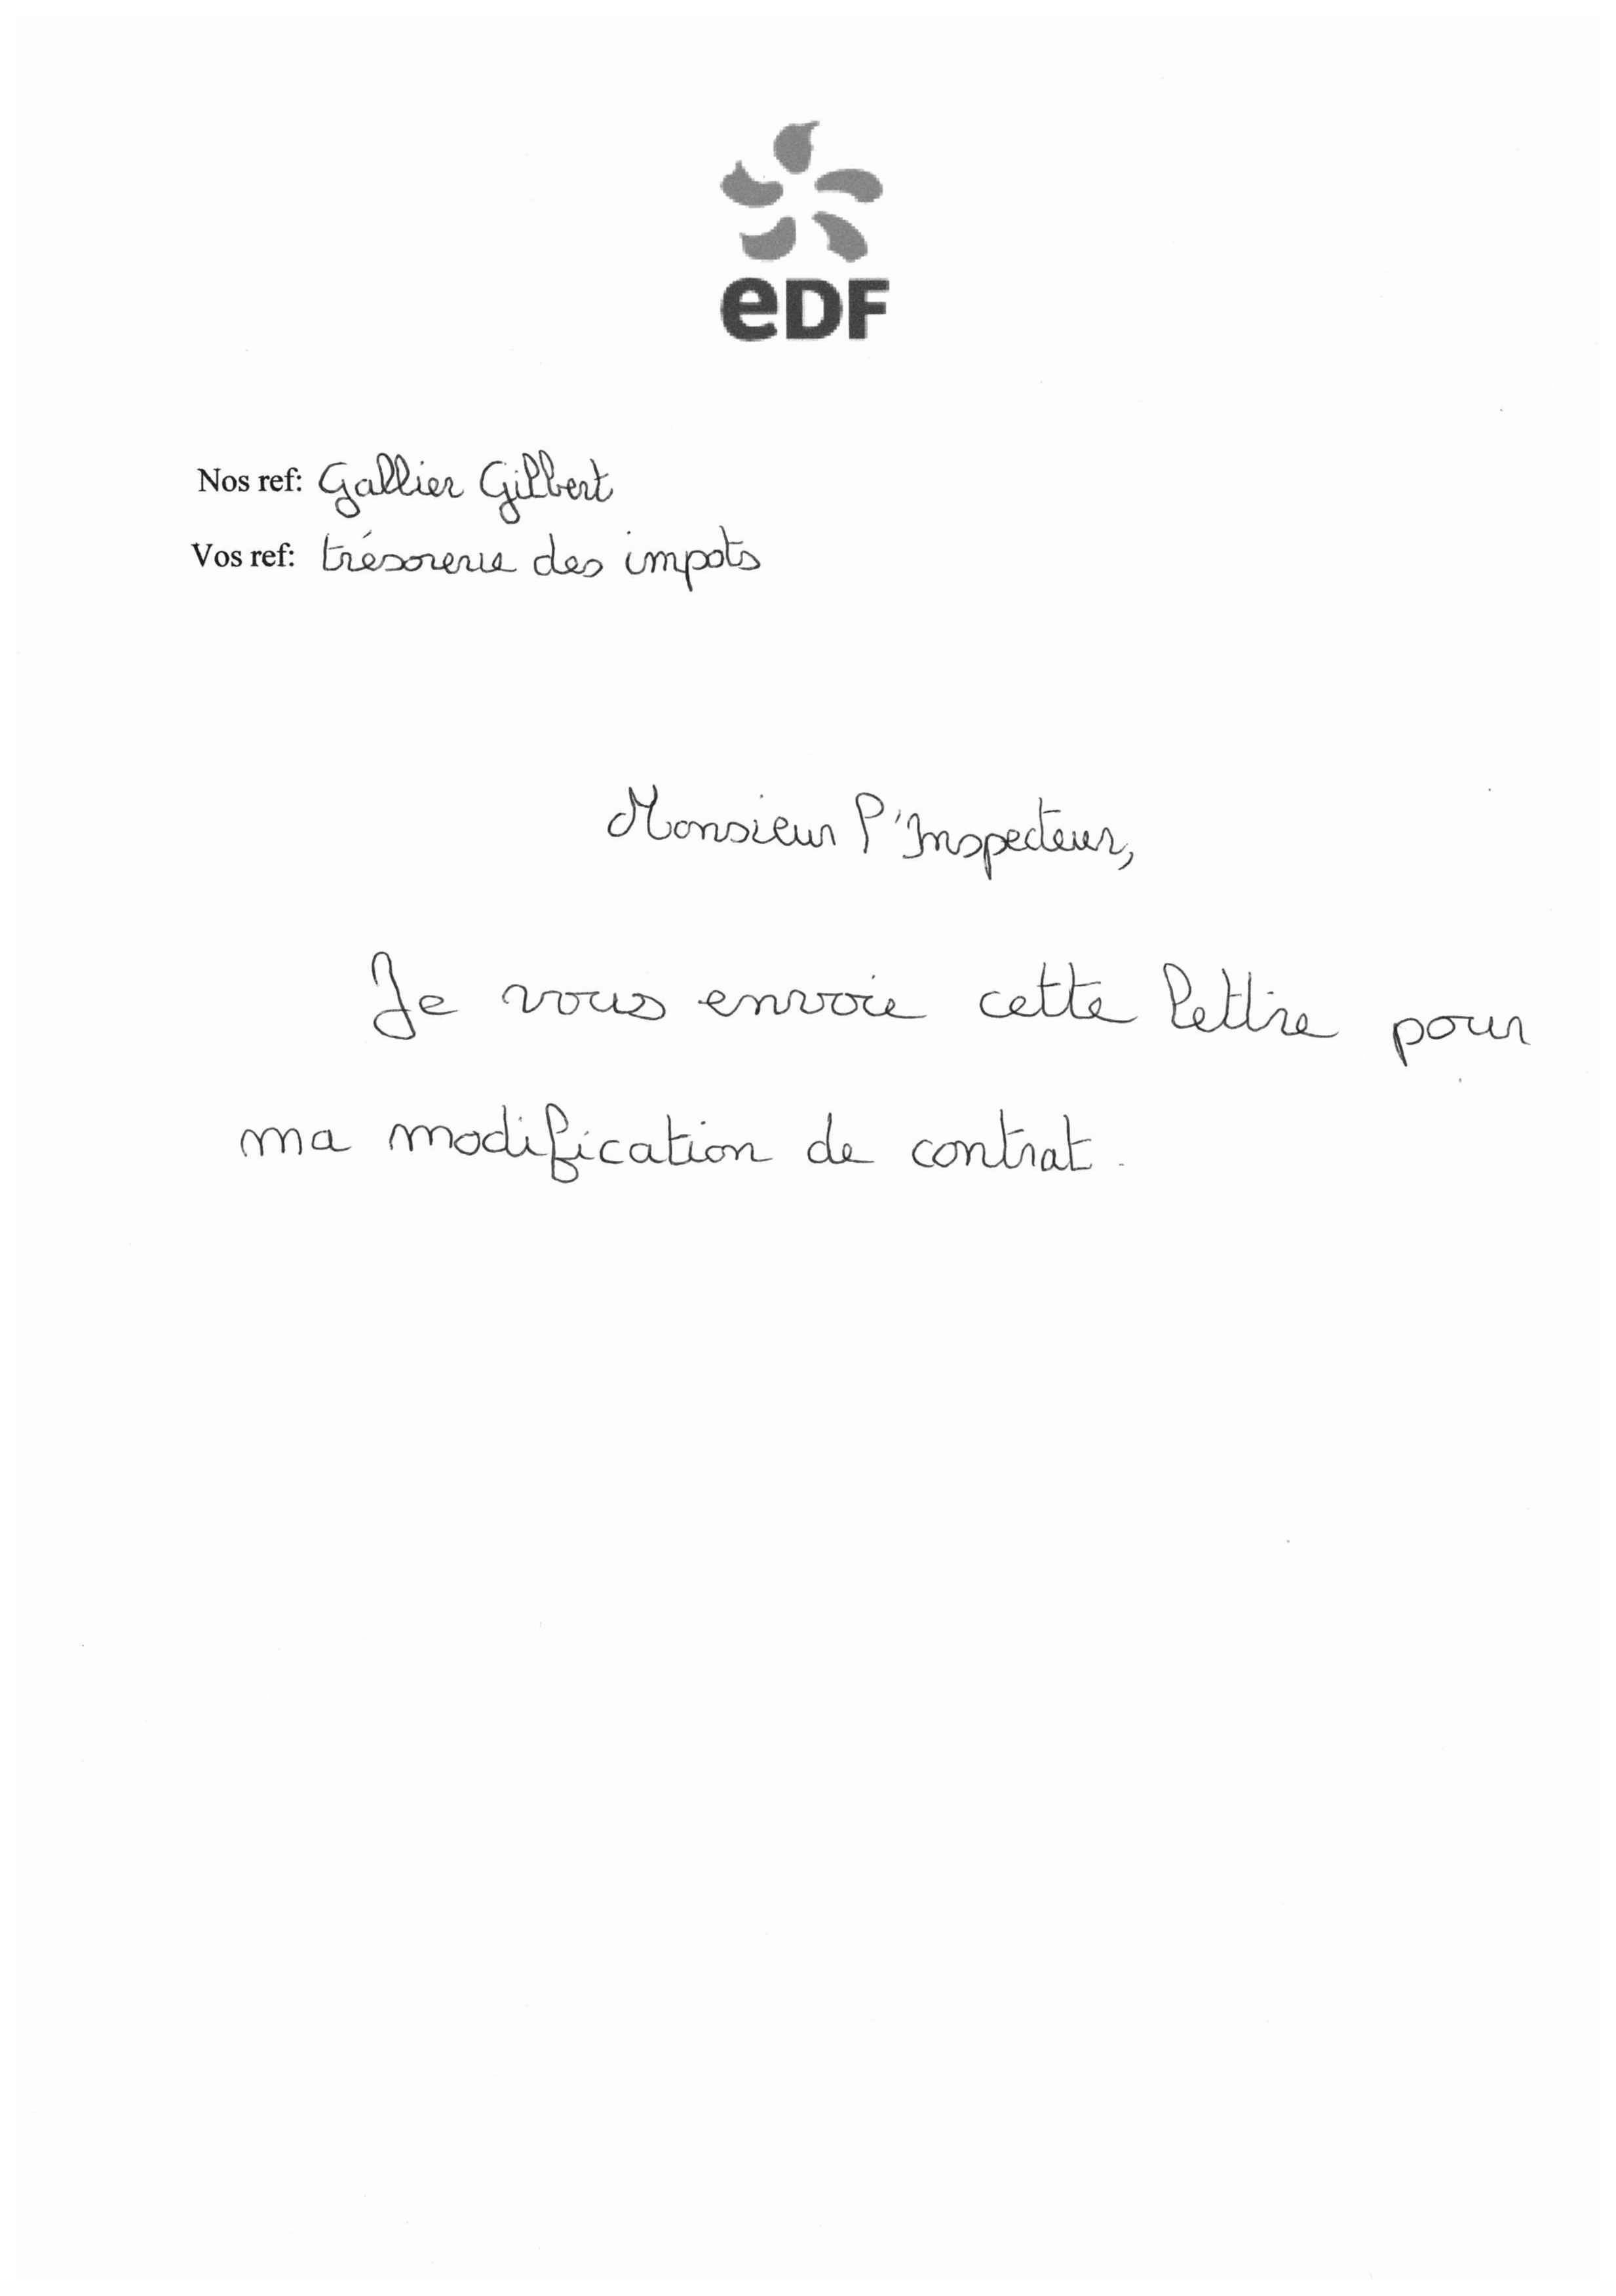 eDF
Nos ref: Gallier Gilbert
Vos ref: trésorerie des impots
Monsieur l'Inspecteur,
Je vous envoie cette lettre pour
ma modification de contrat.